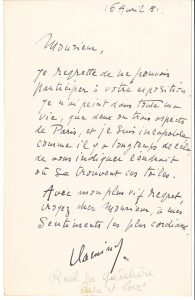 16 Avril 51.
Monsieur,
Je regrette de ne pouvoir
participer à votre exposition.
Je n'ai peint dans toute ma
vie, que deux ou trois aspects
de Paris, et je suis incapable,
comme il y a longtemps de cela
de vous indiquer l'endroit
où se trouvent ces toiles.
Avec mon plus vif regret,
croyez cher Monsieur, à mes
sentiments les plus cordiaux
Vlaminck
Rueil la